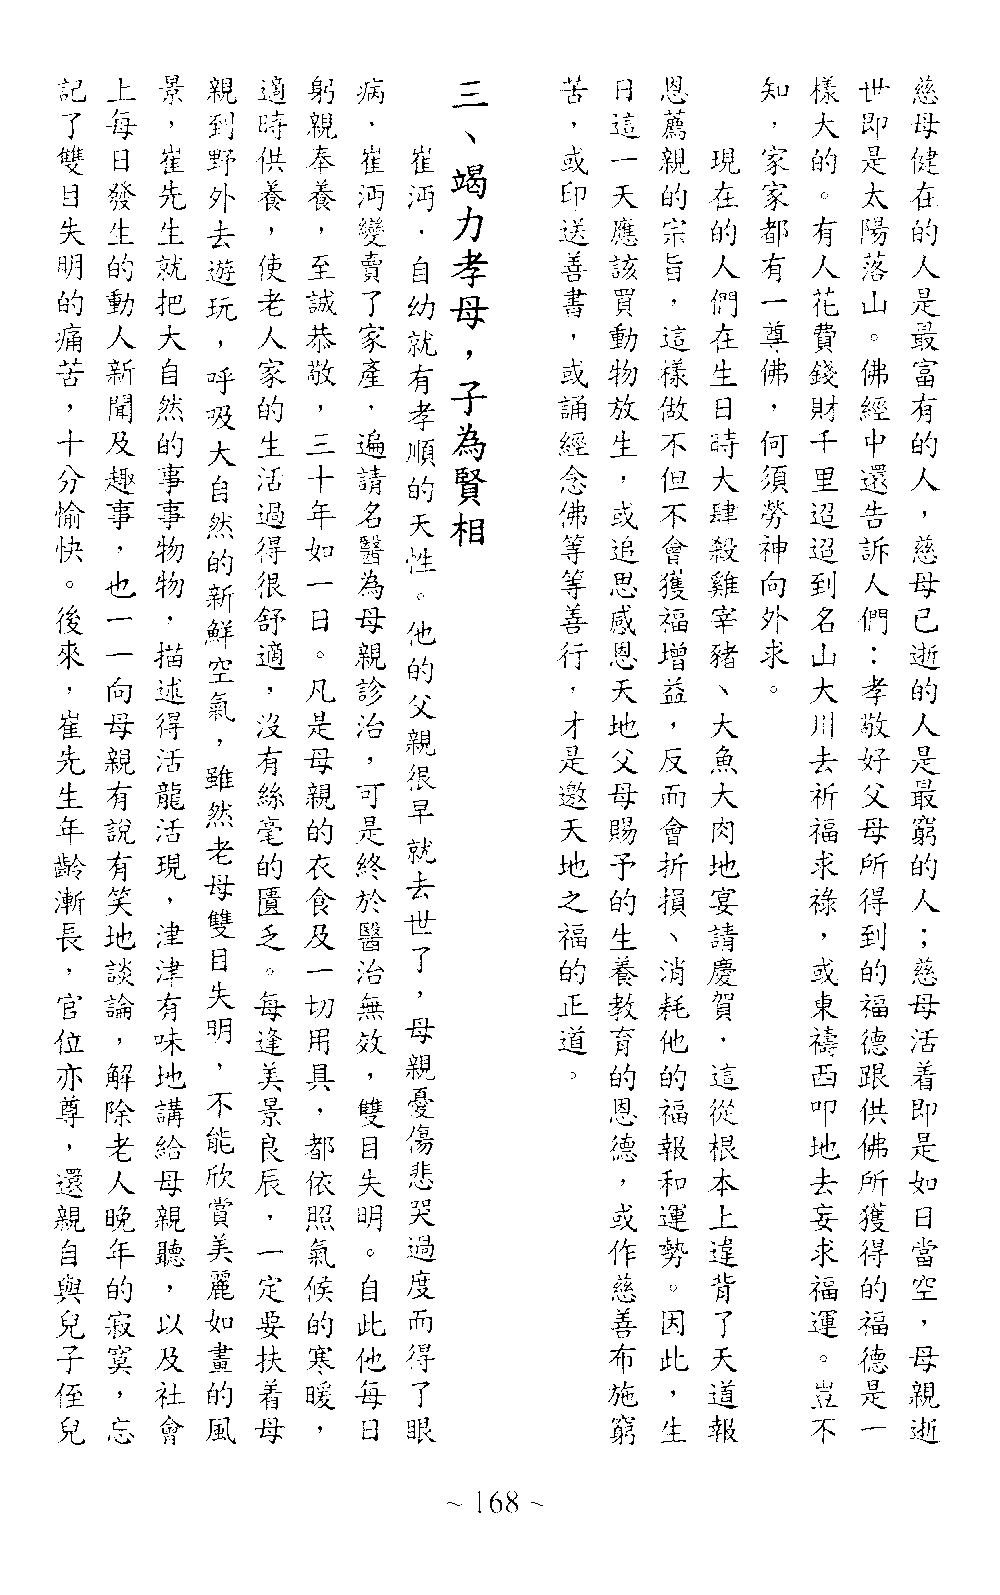 慈母健在的人是最富有的人，慈母已逝的人是最窮的人；慈母活着即是如日當空，母親逝
世即是太陽落山。佛經中還告訴人們：孝敬好父母所得到的福德跟供佛所獲得的福德是一
樣大的。有人花費錢財千里迢迢到名山大川去祈福求祿，或東禱西叩地去妄求福運。豈不
知，家家都有一尊佛，何須勞神向外求。
現在的人們在生日時大肆殺雞宰豬、大魚大肉地宴請慶賀．這從根本上違背了天道報
恩薦親的宗旨，這樣做不但不會獲福增益，反而會折損、消耗他的福報和運勢。因此，生
日這一天應該買動物放生，或追思感恩天地父母賜予的生養教育的恩德，或作慈善布施窮
苦，或印送善書，或誦經念佛等等善行，才是邀天地之福的正道。
三、竭力孝母，子為賢相
崔沔．自幼就有孝順的天性。他的父親很早就去世了，母親憂傷悲哭過度而得了眼
病．崔沔變賣了家產．遍請名醫為母親診治，可是終於醫治無效，雙目失明。自此他每日
躬親奉養，至誠恭敬，三十年如一日。凡是母親的衣食及一切用具，都依照氣候的寒暖，
適時供養，使老人家的生活過得很舒適，沒有絲毫的匱乏。每逢美景良辰，一定要扶着母
親到野外去遊玩，呼吸大自然的新鮮空氣，雖然老母雙目失明，不能欣賞美麗如畫的風
景，崔先生就把大自然的事事物物，描述得活龍活現，津津有味地講給母親聽，以及社會
上每日發生的動人新聞及趣事，也一一向母親有說有笑地談論，解除老人晚年的寂寞，忘
記了雙目失明的痛苦，十分愉快。後來，崔先生年齡漸長，官位亦尊，還親自與兒子侄兒
~ 168 ~